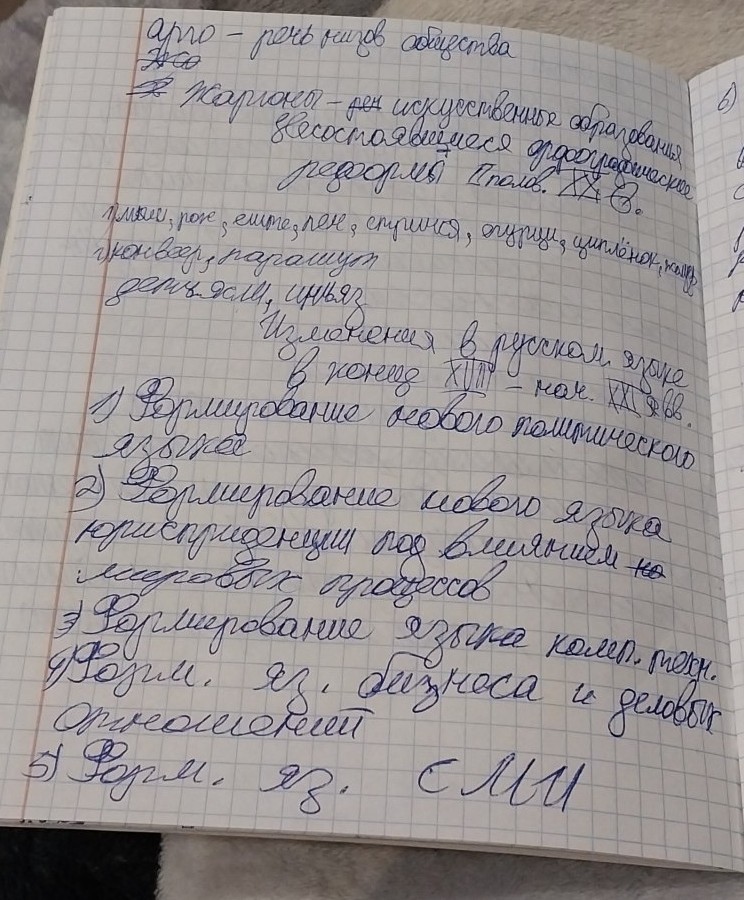 арго – речь низов общества
Жаргоны – искусственные образования
Несостоявшиеся орфографические
реформы II полов. XX в.
1) мыш, рож, еште, реж, стрится, огурци, циплёнок,
2) конвеер, парашут
деть ясли, иньяз
Изменения в русском языке
в конце XVIII – нач. XXI вв.
1) Формирование нового политического
языка
2) Формирование нового языка
юриспруденции под влиянием
мировых процессов
3) Формирование языка комп. техн.
4) Форм. яз. бизнеса и деловых
отношений
5) Форм. яз. СМИ
6)